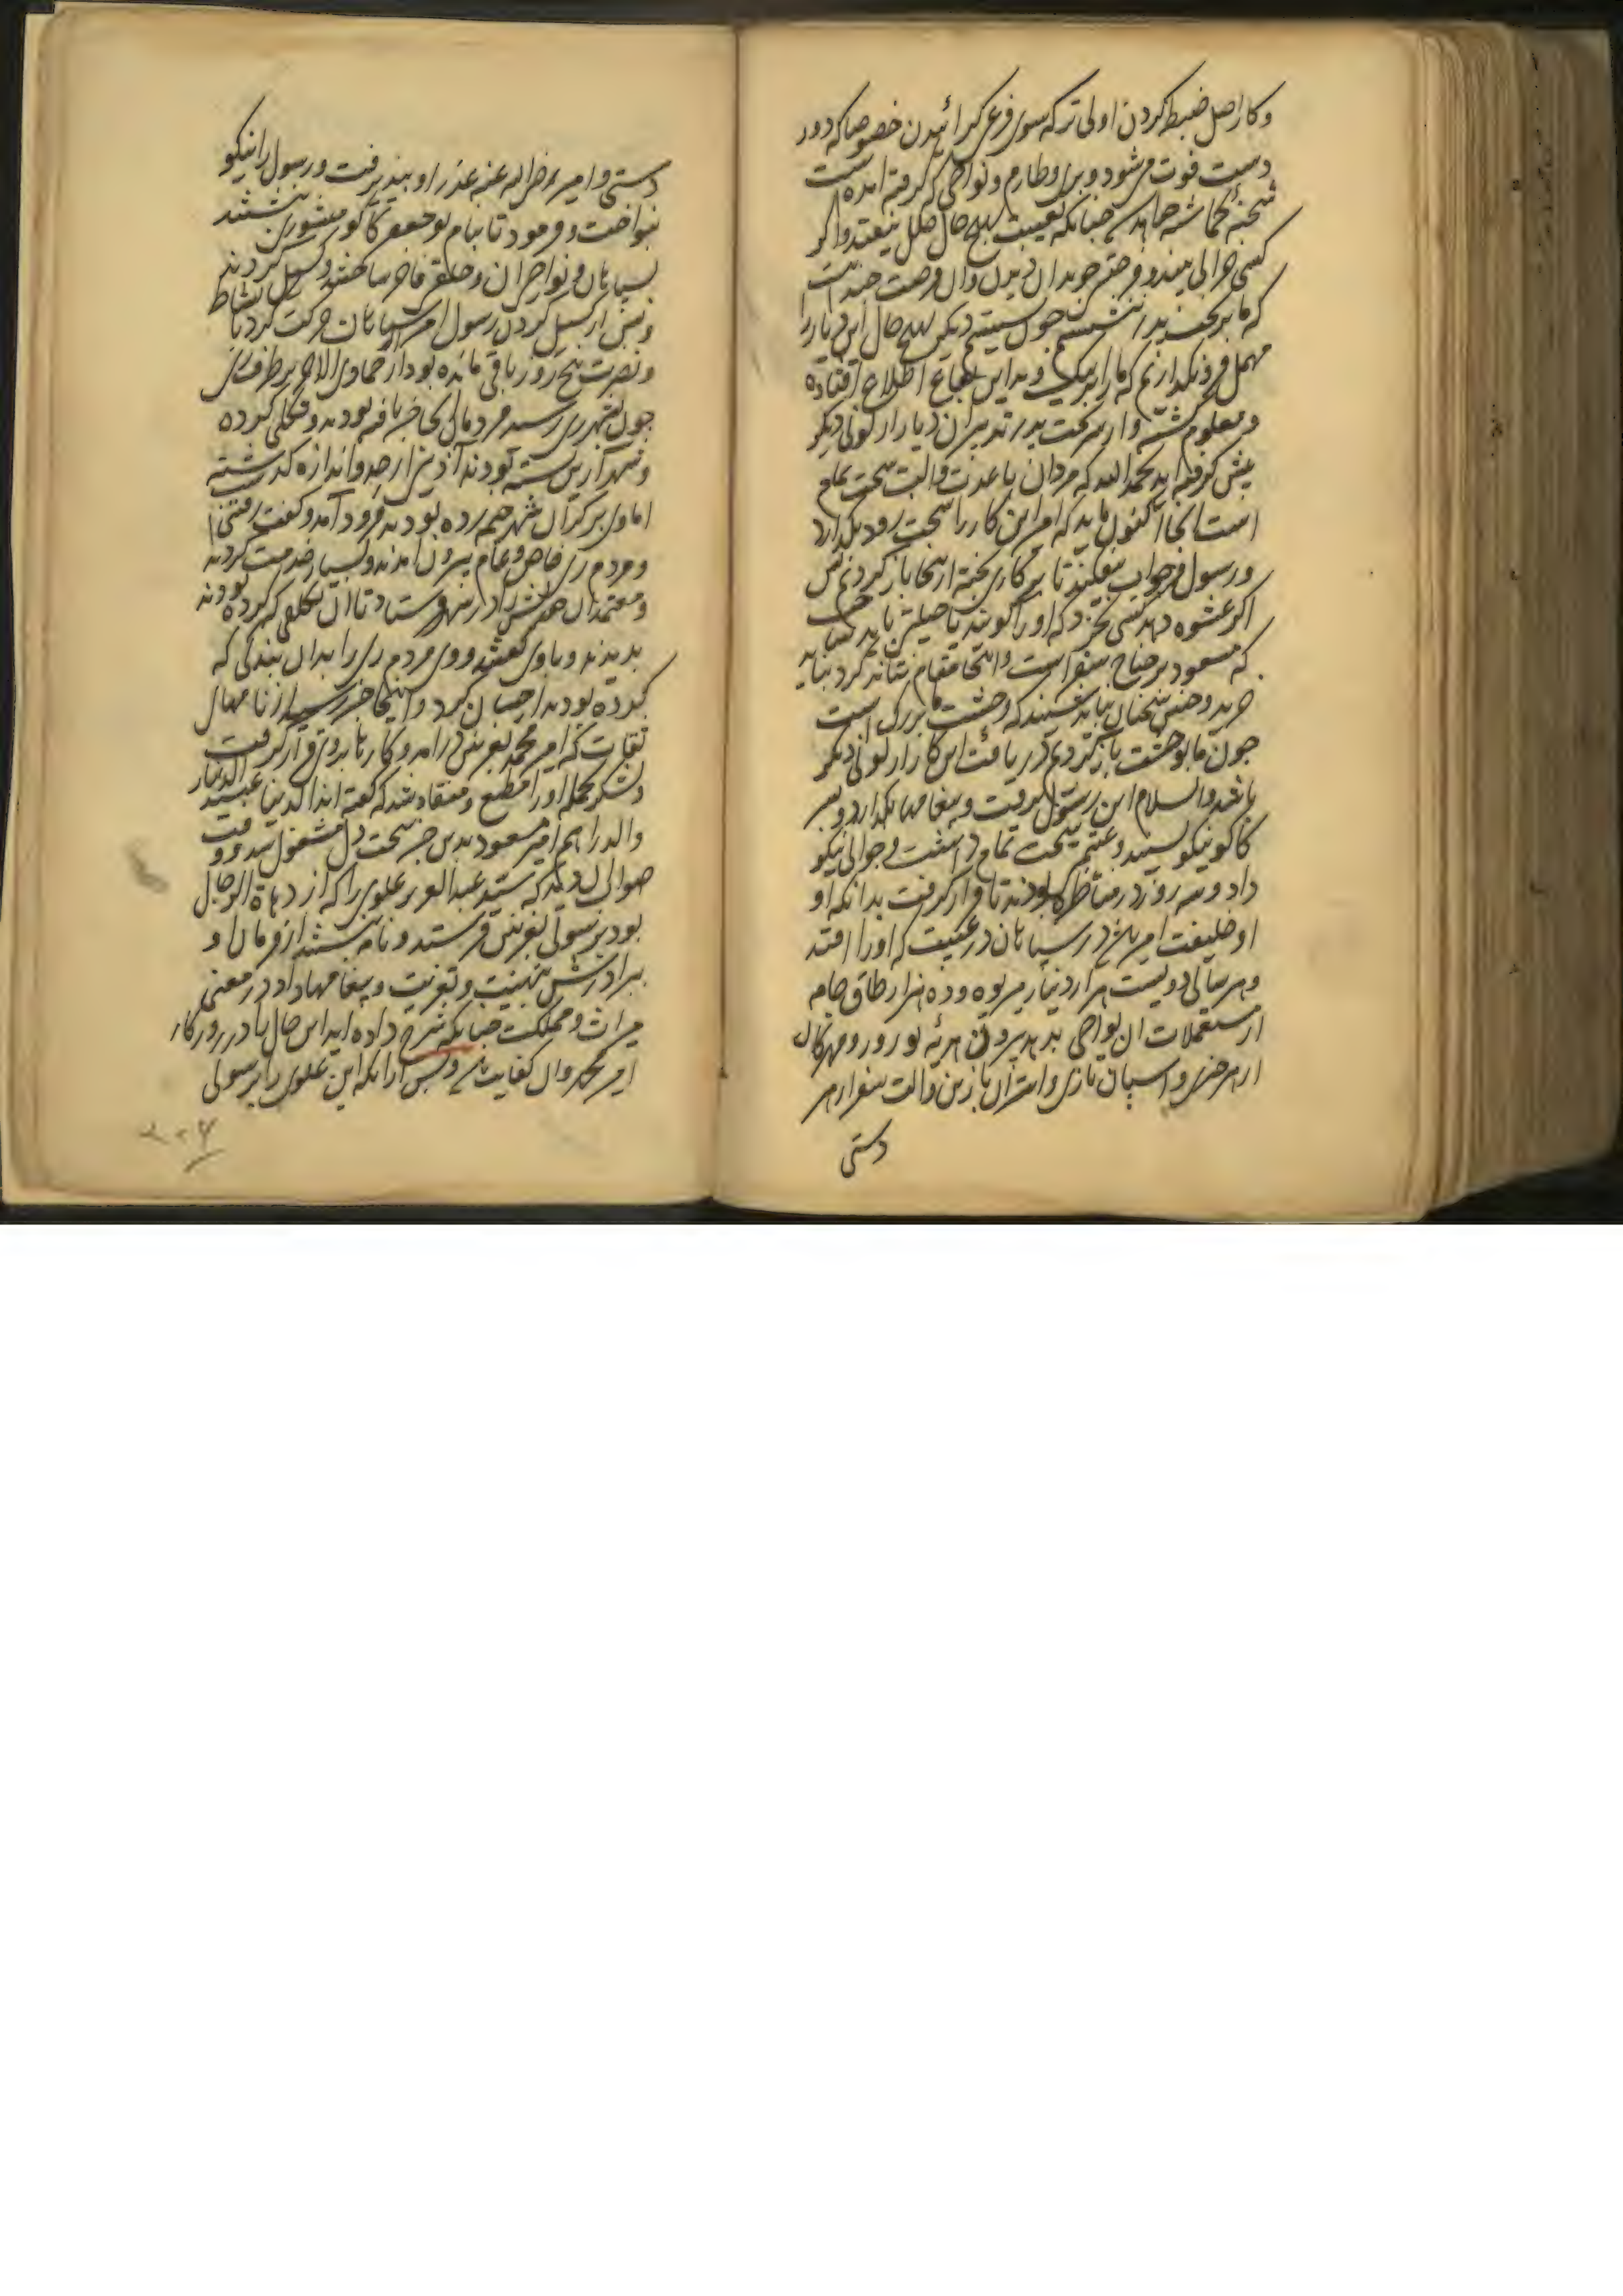 و کار اصل ضبط کردن اولی تر که سوی فرع گرائیدن خصوصا که دور
دست فوت می شود و بری و طارم و نواحی که گرفته امده است
شحنهٔ کماشته خواهد چنانکه بغیبت بهیچ حال خلل نیفتد و اگر
کسی خوابی بیند و فرصتی جوید ان دیدن وان فرصت چندانست
که ما بر تخت پدر نشستیم چون نشستیم دیگر بهیچ حال این دیار را
مهمل فرونگذاریم که ما را بر نیک و بد این بقاع اطلاع افتاده
و معلوم کشته و از سر تخت پدر تدبیر ان دیار از لونی دیگر
پیش گرفته اید بحمد الله که مردان با عدت والت سخت تمام
است انجا اکنون باید که امیر این کار را سخت زود بگذارد
و رسول فرجواب نیفکند تا بر کاری پخته از اینجا باز گردیم پس
اگر عشوه دهد کسی نخرد که او را گویند با حیلتی باید ساخت
که مسعود بر جناح سفر است و اینجا مقام نتواند کرد نباید
خرید و چنین سخنان نباید شنید که وحشت ما بزرگ است
چون ما بوحشت باز گردیم دریافت این کار از لونی دیگر
باشد والسلام این رسول برفت و پیغامها بگذارد و پسر
کاکو نیکو شنید و غنیمتی سخت تمام داشت و جوابی نیکو
داد و سه روز در مناظره بودند تا قرار گرفت بدانکه او
او خلیفت امیر باشد در سپاهان در غیبت که او را افتد
و هر سالی دویست هزار دینار هریوه و ده هزار طاق جامه
از مستعملات ان نواحی بدهد بیرون هدیه نوروز و مهرگان
از هر چیزی و اسپان تازی و استران با زین و الت سفر از هر
دستی
دستی و امیر رضی الله عنه عذر او بپذیرفت و رسول را نیکو
بنواخت و فرمود تا بنام بوجعفر کاکو منشوری نبشتند
بسپاهان و نواحی ان و خلعتی فاخر ساختند و گسیل کردند
و پس از گسیل کردن رسول امیر از سپاهان حرکت کرد با نشاط
و نصرت پنج روز باقی مانده بود از جمادی الاخر بر طرف ری
چون بشهر ری رسید مردمان انجا خبر یافته بودند و تکلفی کرده
و شهر آذین بسته بودند آذینی از حد و اندازه گذشته
اما وی بر کران شهر خیمه زده بودند فرود آمد و گفت رفتنیست
و مردم ری خاص و عام بیرون امدند و بسیار خدمت کردند
و معتمدان خویش را در شهر فرستاد تا ان تکلفی که کرده بودند
بدیدند و با وی گفتند و وی مردم ری را بدان بندگی که
کرده بودند احسان کرد و اینجا خبر رسید از نامهای
ثقات که امیر محمد بغزنین درامد و کارها بروی قرار گرفت
و لشکر بجمله او را مطیع و منقاد شد که گفته اند الدنیا عبید الدینار
والدراهم امیر مسعود بدین خبر سخت دل مشغول شد و وقت
صواب ان دید که سید عبدالعزیز علوی را که از دهاة الرجال
بود برسولی بغزنین فرستند و نامه نبشتند از فرمان او
ببرادرش بتهنیت و تعزیت و پیغامها داد در معنی
میراث و مملکت چنانکه شرح داده اید این حال را در روزگار
امیر محمد وان کفایت باشد و پس از انکه این علوی را برسولی
۲۰۴